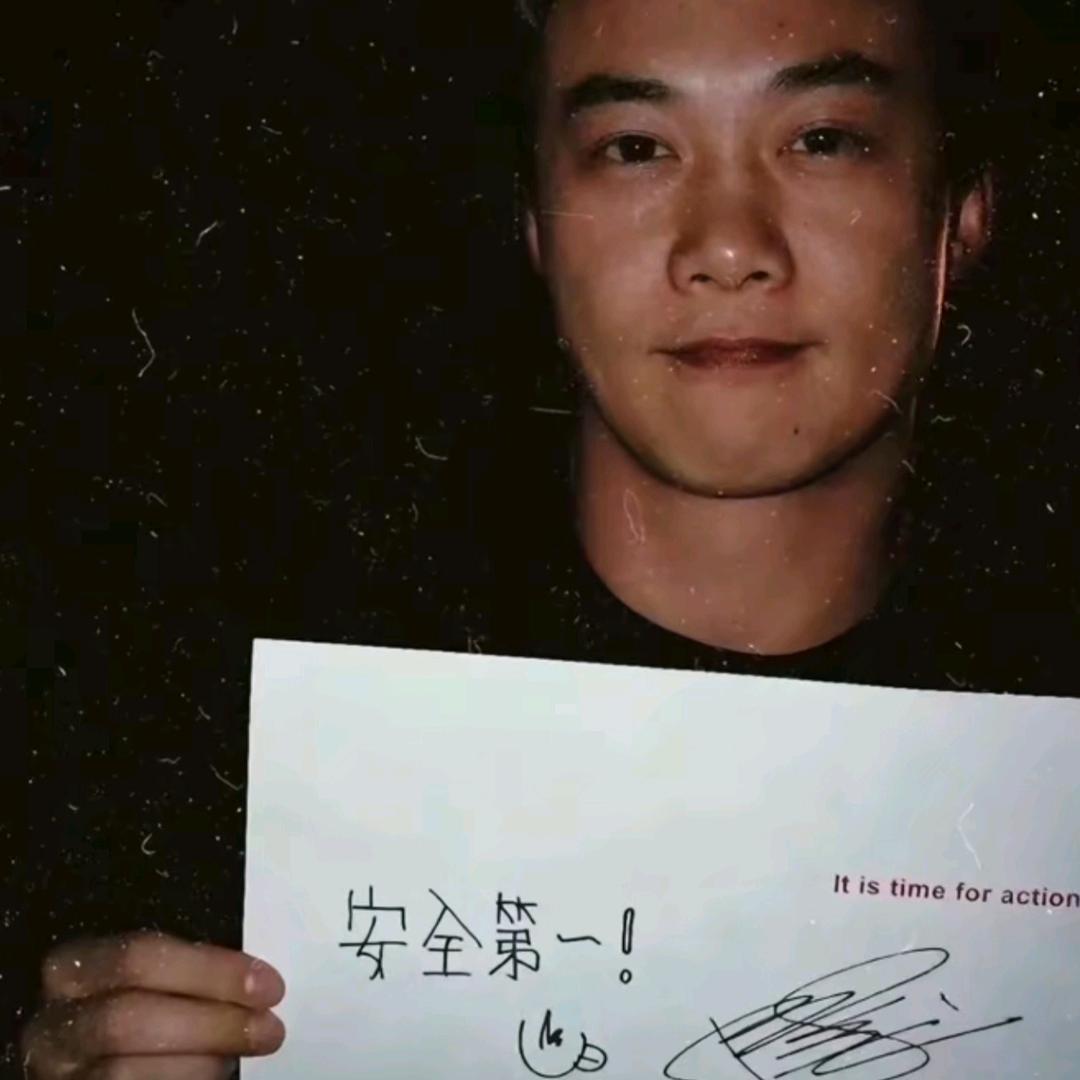 It is time for action
安全第一!